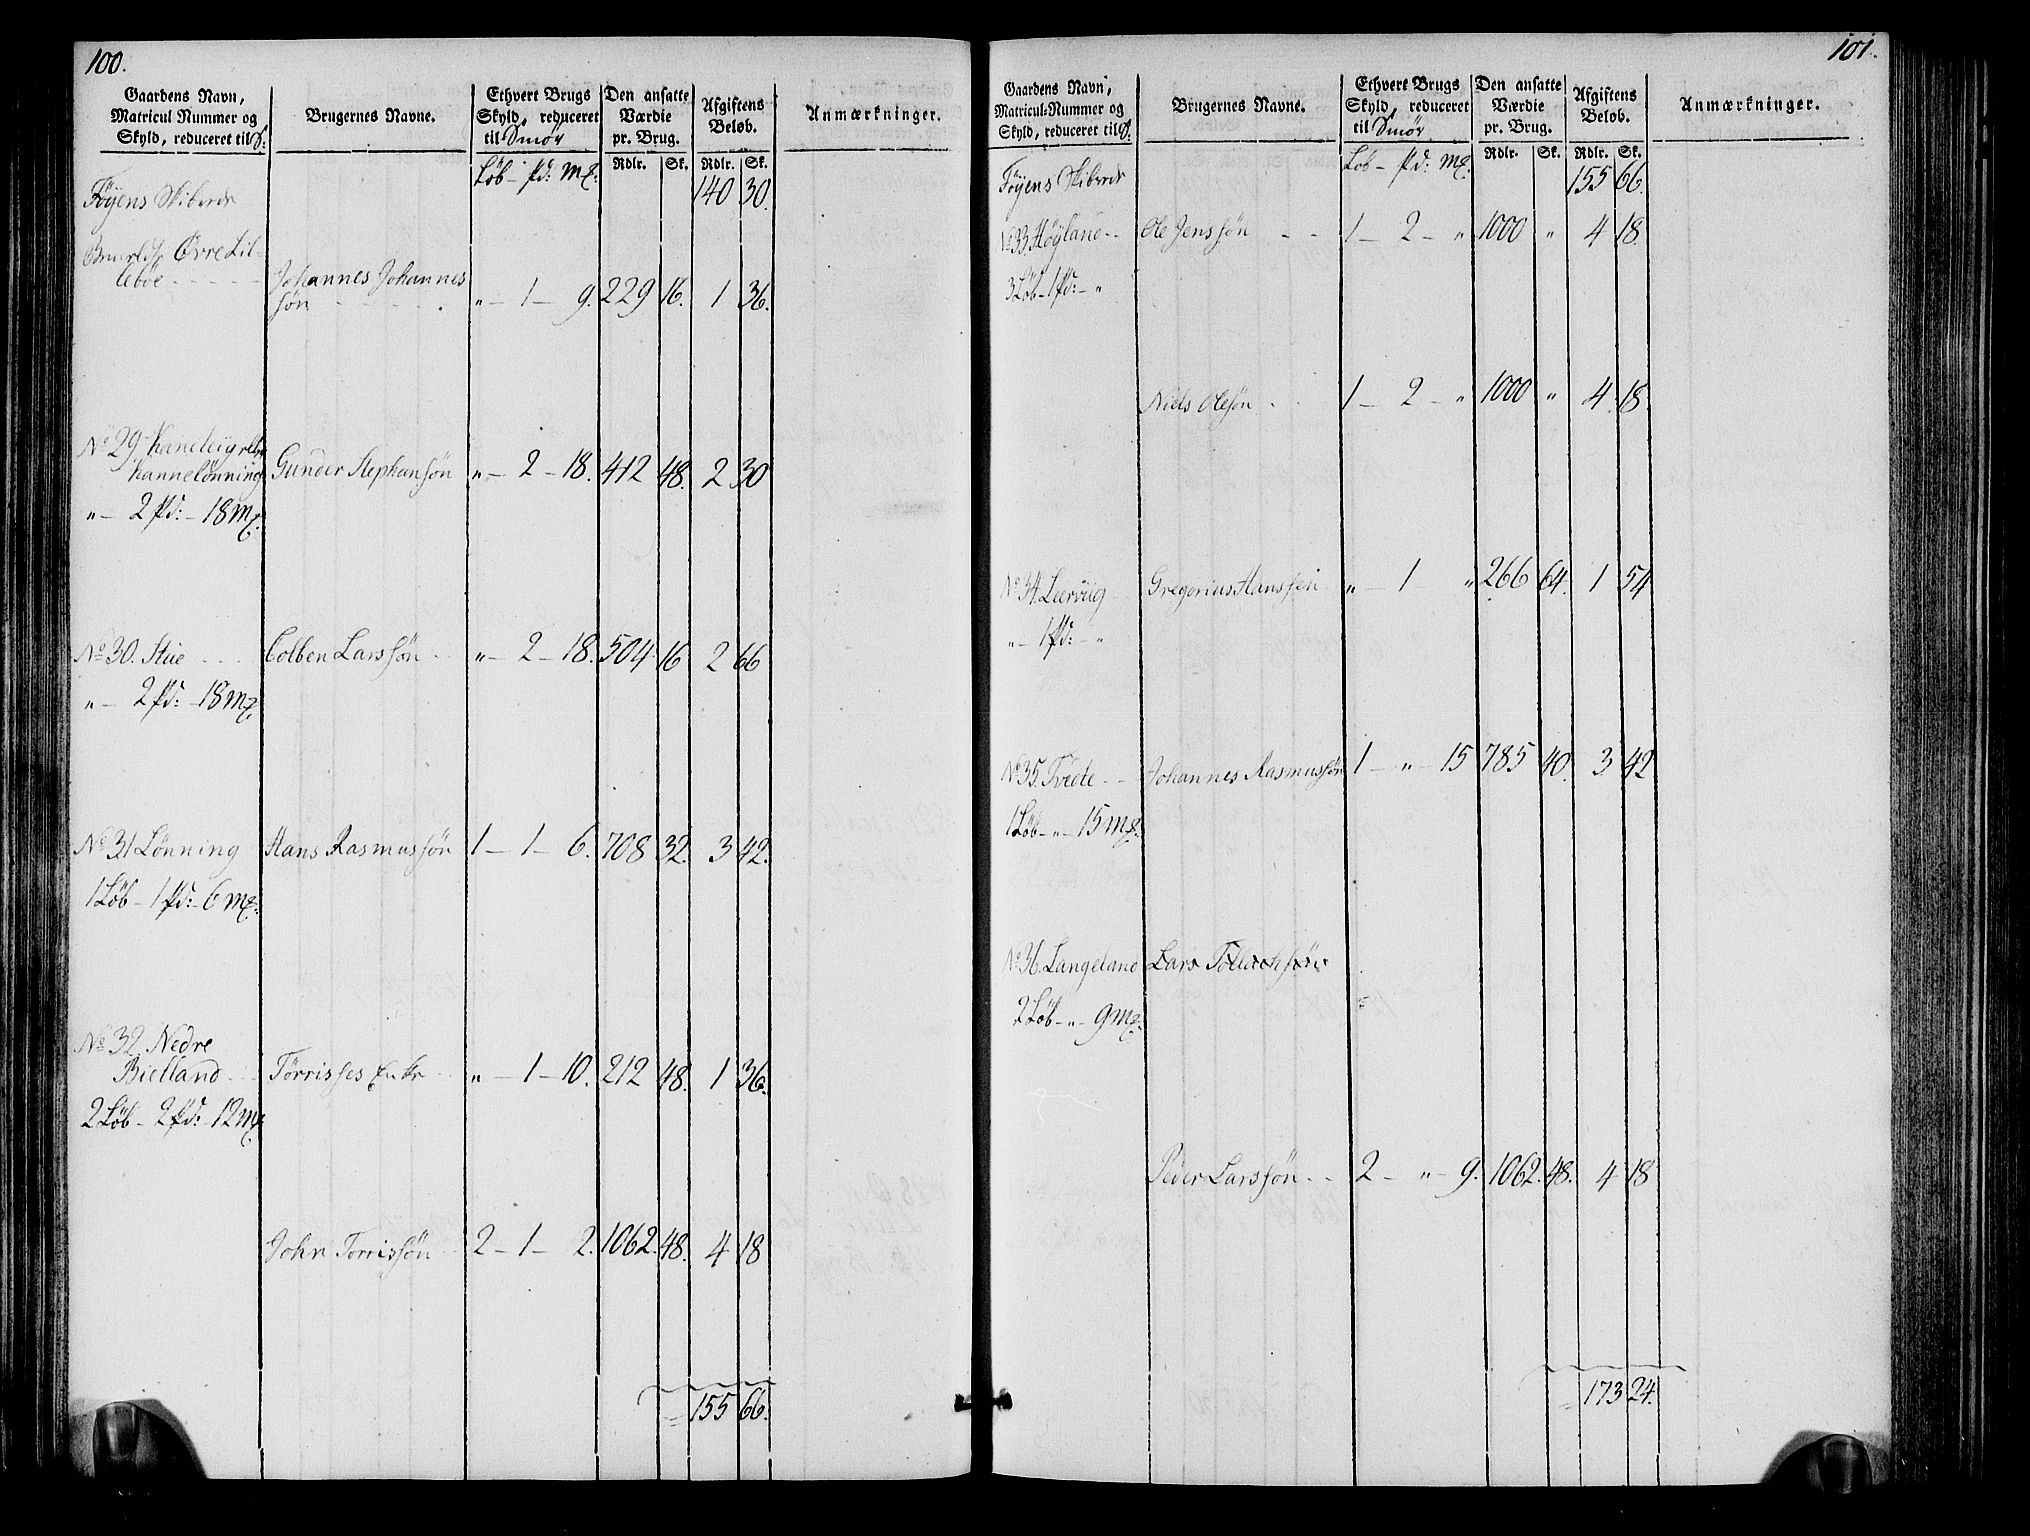 100.
Gaardens Navn, Matricul Nummer og Skyld, reduceret til
Brugernes Navne.
Ethvert Brugs Skyld, reduceret til Smør
Den ansatte Værdie pr. Brug.
Afgiftens Beløb.
Anmærkninger.
Löb – pd: mk:
Rdlr. Sk. Rdlr. Sk.
Föyens Skibrede 140 30.
Övre Lil-
leböe - - - - - Johannes Johannes
sön - - - - - " – 1 – 9. 229 16. 1 36.
No 29. Kaneleig
Kannelönning Gunder Stephansön " – 2 – 18. 412 48. 2 30
" – 2 pd: – 18 mk.
No 30. Stue - - - Colben Larssön - - " – 2 – 18. 504 16 2 66
" – 2 pd: – 18 mk.
No 31 Lönning Hans Rasmussön 1 – 1 – 6. 708 32. 3 42.
1 Löb – 1 pd: – 6 mk.
No 32. Nedre
Bielland - - Törrisses Enke - - " – 1 – 10. 212 48. 1 36.
2 Löb – 2 pd: – 12 mk
John Torrissön - - 2 – 1 – 2. 1062. 48. 4 18
= 155 66.
101.
Gaardens Navn, Matricul-Nummer og Skyld, reduceret til
Brugernes Navne.
Ethvert Brugs Skyld, reduceret til Smör
Den ansatte Værdie pr. Brug.
Afgiftens Beløb.
Anmærkninger.
Löb – pd: mk.
Rdlr. Sk. Rdlr. Sk.
Föyens Skibrede 155 66.
No 33. Höyland - - Ole Jenssön - - 1 – 2 – " 1000 " 4 18.
3 Löb – 1 pd: – "
Niels Olesön - - 1 – 2 – " 1000 " 4. 18.
No 34. Leervüg - Gregorius Hanssön " – 1 – " 266 64. 1 54
" – 1 pd: – "
No 35. Tvedte - - Johannes Rasmussön 1 – " – 15 785 40. 3 42
1 Löb – " – 15 mk.
No 36. Langeland Lars
2 Löb – " – 9 mk.
Peder Larssön - - 2 – " – 9. 1062. 48. 4 18
= 173 24.